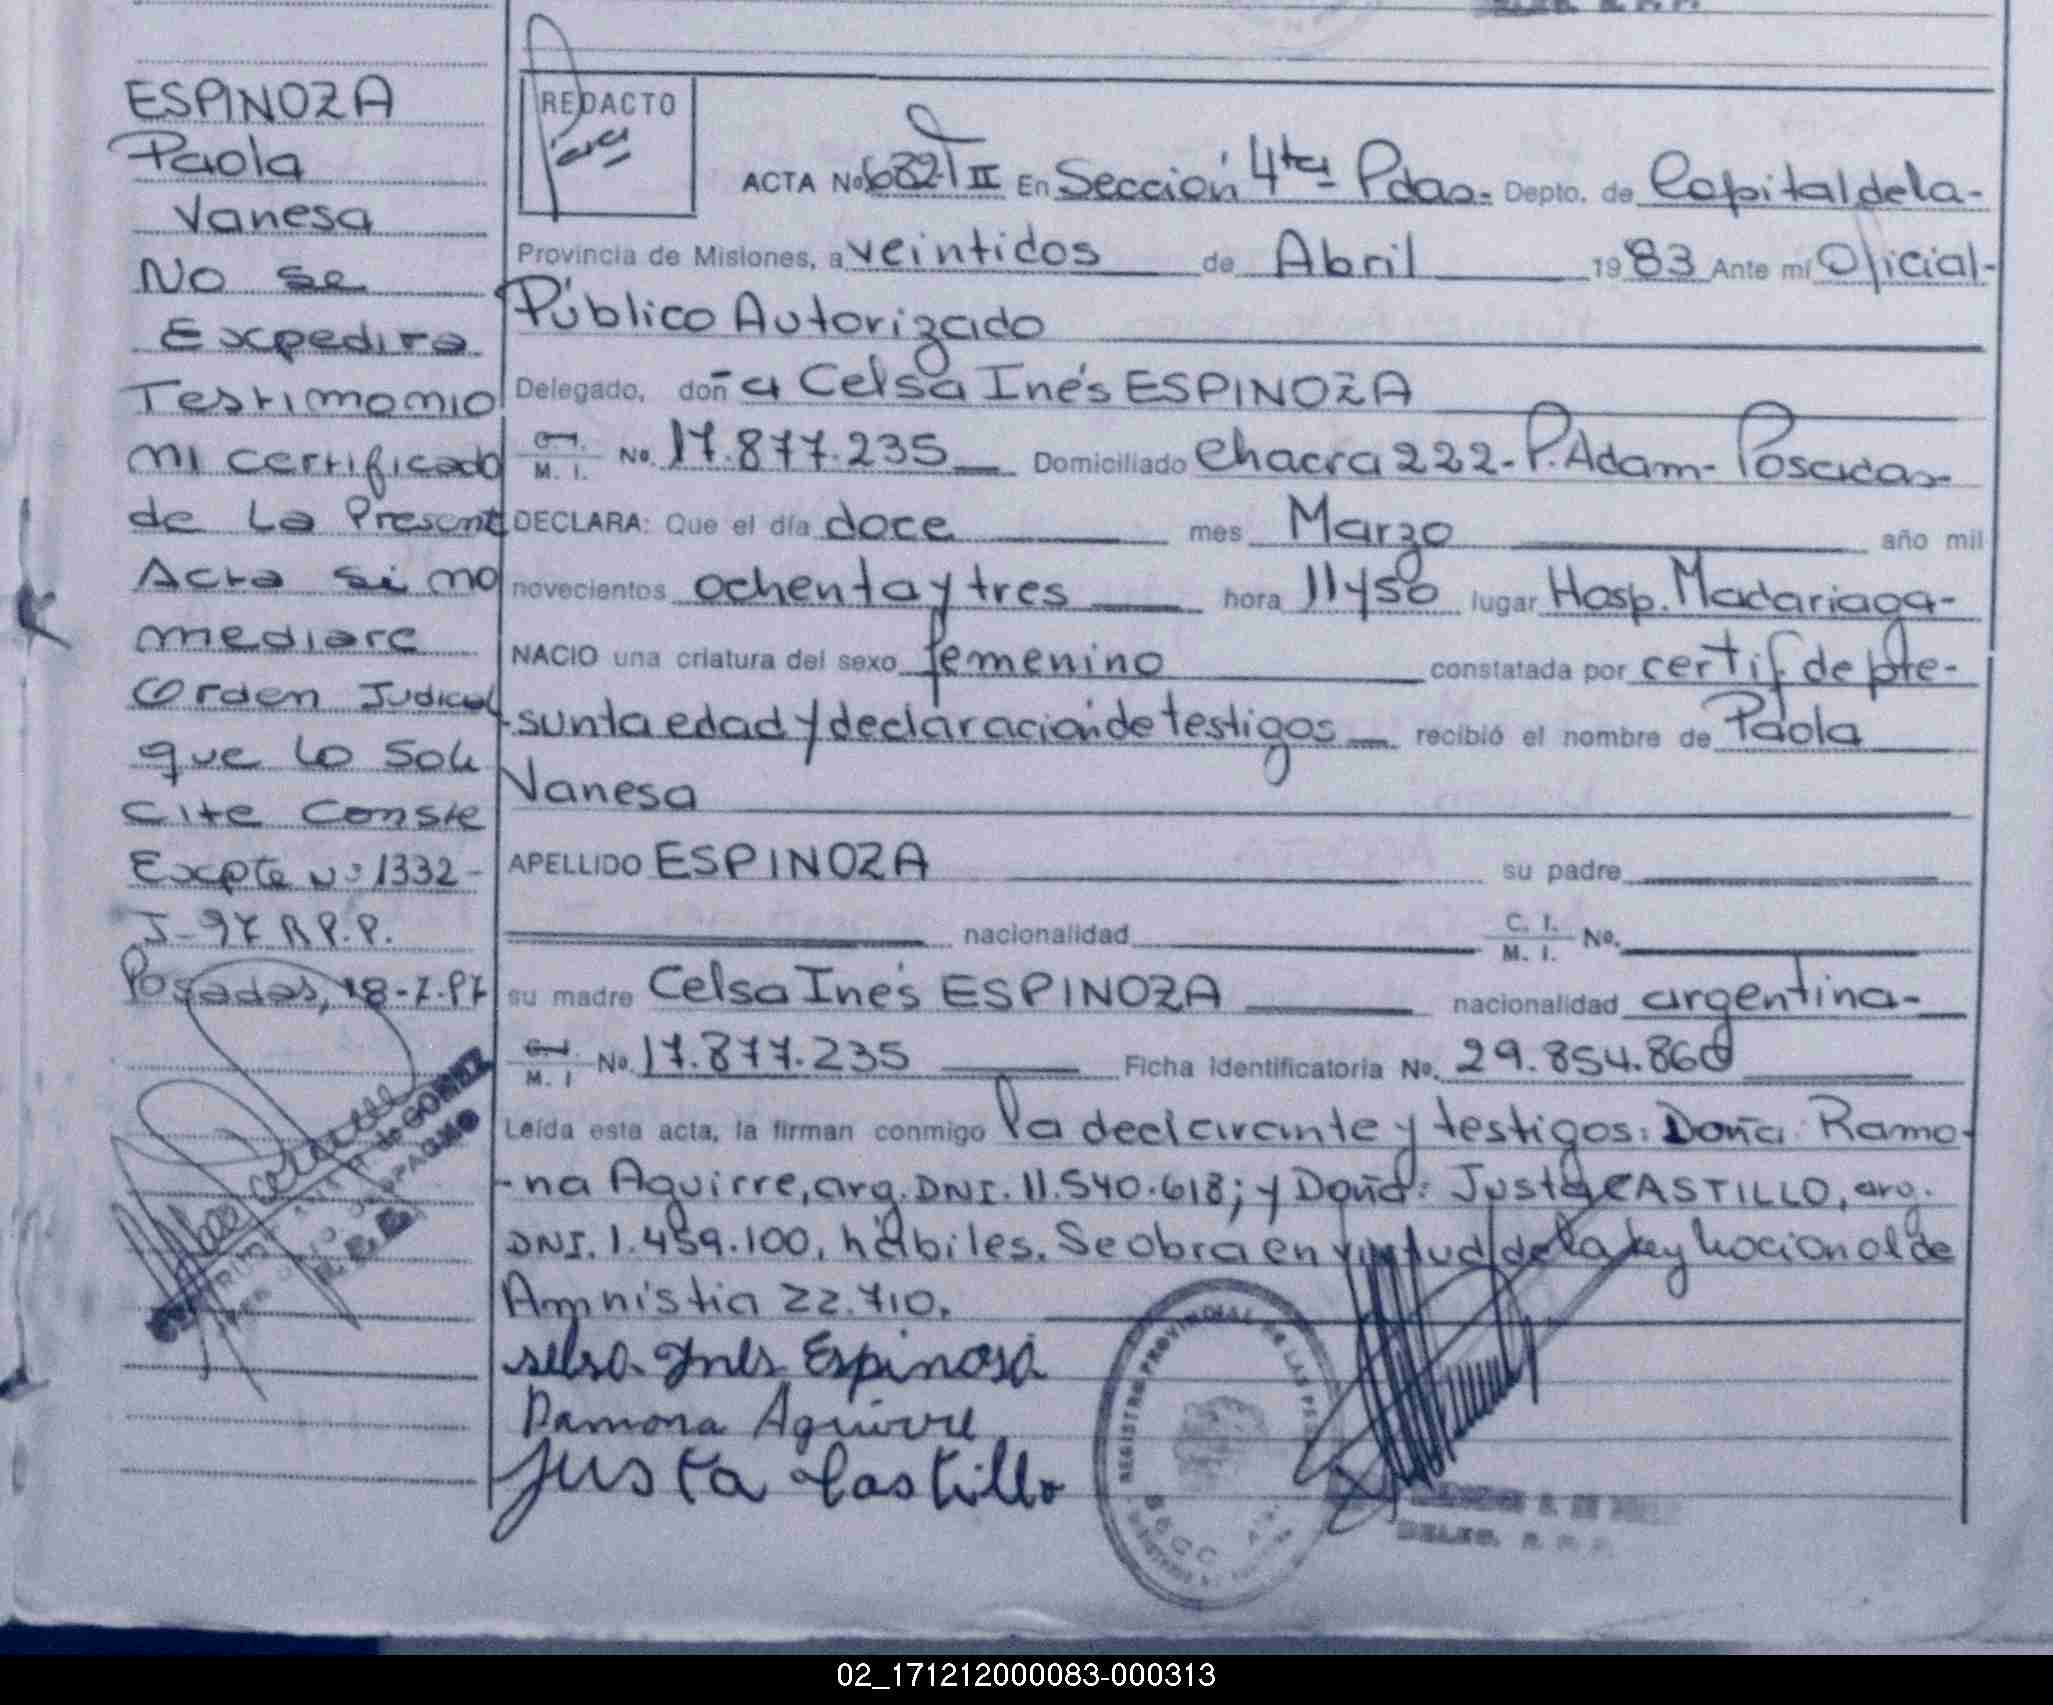 ESPINOZA
Paola
Vanesa
No se
Expedira
Testimonio
ni certificado
de La Present
Acta si no
mediare
Orden Judicial
que lo Soli
cite Conste
Expte Nº 1332-
J-97 R.P.P.
Posadas, 18-7-97
REDACTO
ACTA No 682 T II En Sección 4ta Pdas. Depto. de Capital de la-
Provincia de Misiones, a veintidos de Abril 1983 Ante mí Oficial-
Público Autorizado
Delegado, doña Celsa Inés ESPINOZA
C.I. M. I. No. 17.877.235 Domiciliado Chacra 222- P. Adam- Posadas-
DECLARA: Que el día doce mes Marzo año mil
novecientos ochenta y tres hora 11 y 50 lugar Hosp. Madariaga-
NACIO una criatura del sexo femenino constatada por certif de pre-
-sunta edad y declaración de testigos recibió el nombre de Paola
Vanesa
APELLIDO ESPINOZA su padre
nacionalidad C. I. M. I. No.
su madre Celsa Inés ESPINOZA nacionalidad argentina-
C.I. M. I No. 17.877.235 Ficha identificatoria No. 29.854.860
Leída esta acta, la firman conmigo la declarante y testigos: Doña Ramo-
-na Aguirre, arg. DNI. 11.540.618; y Doña: Justa CASTILLO, arg.
DNI. 1.459.100, hábiles. Se obra en virtud de la Ley Nacional de
Amnistia 22.710.
selsa Ines Espinosa
Ramona Aguirre
Justa Castillo
REGISTRO PROVINCIAL DE LAS
DELEG. R. P. P.
02_171212000083-000313